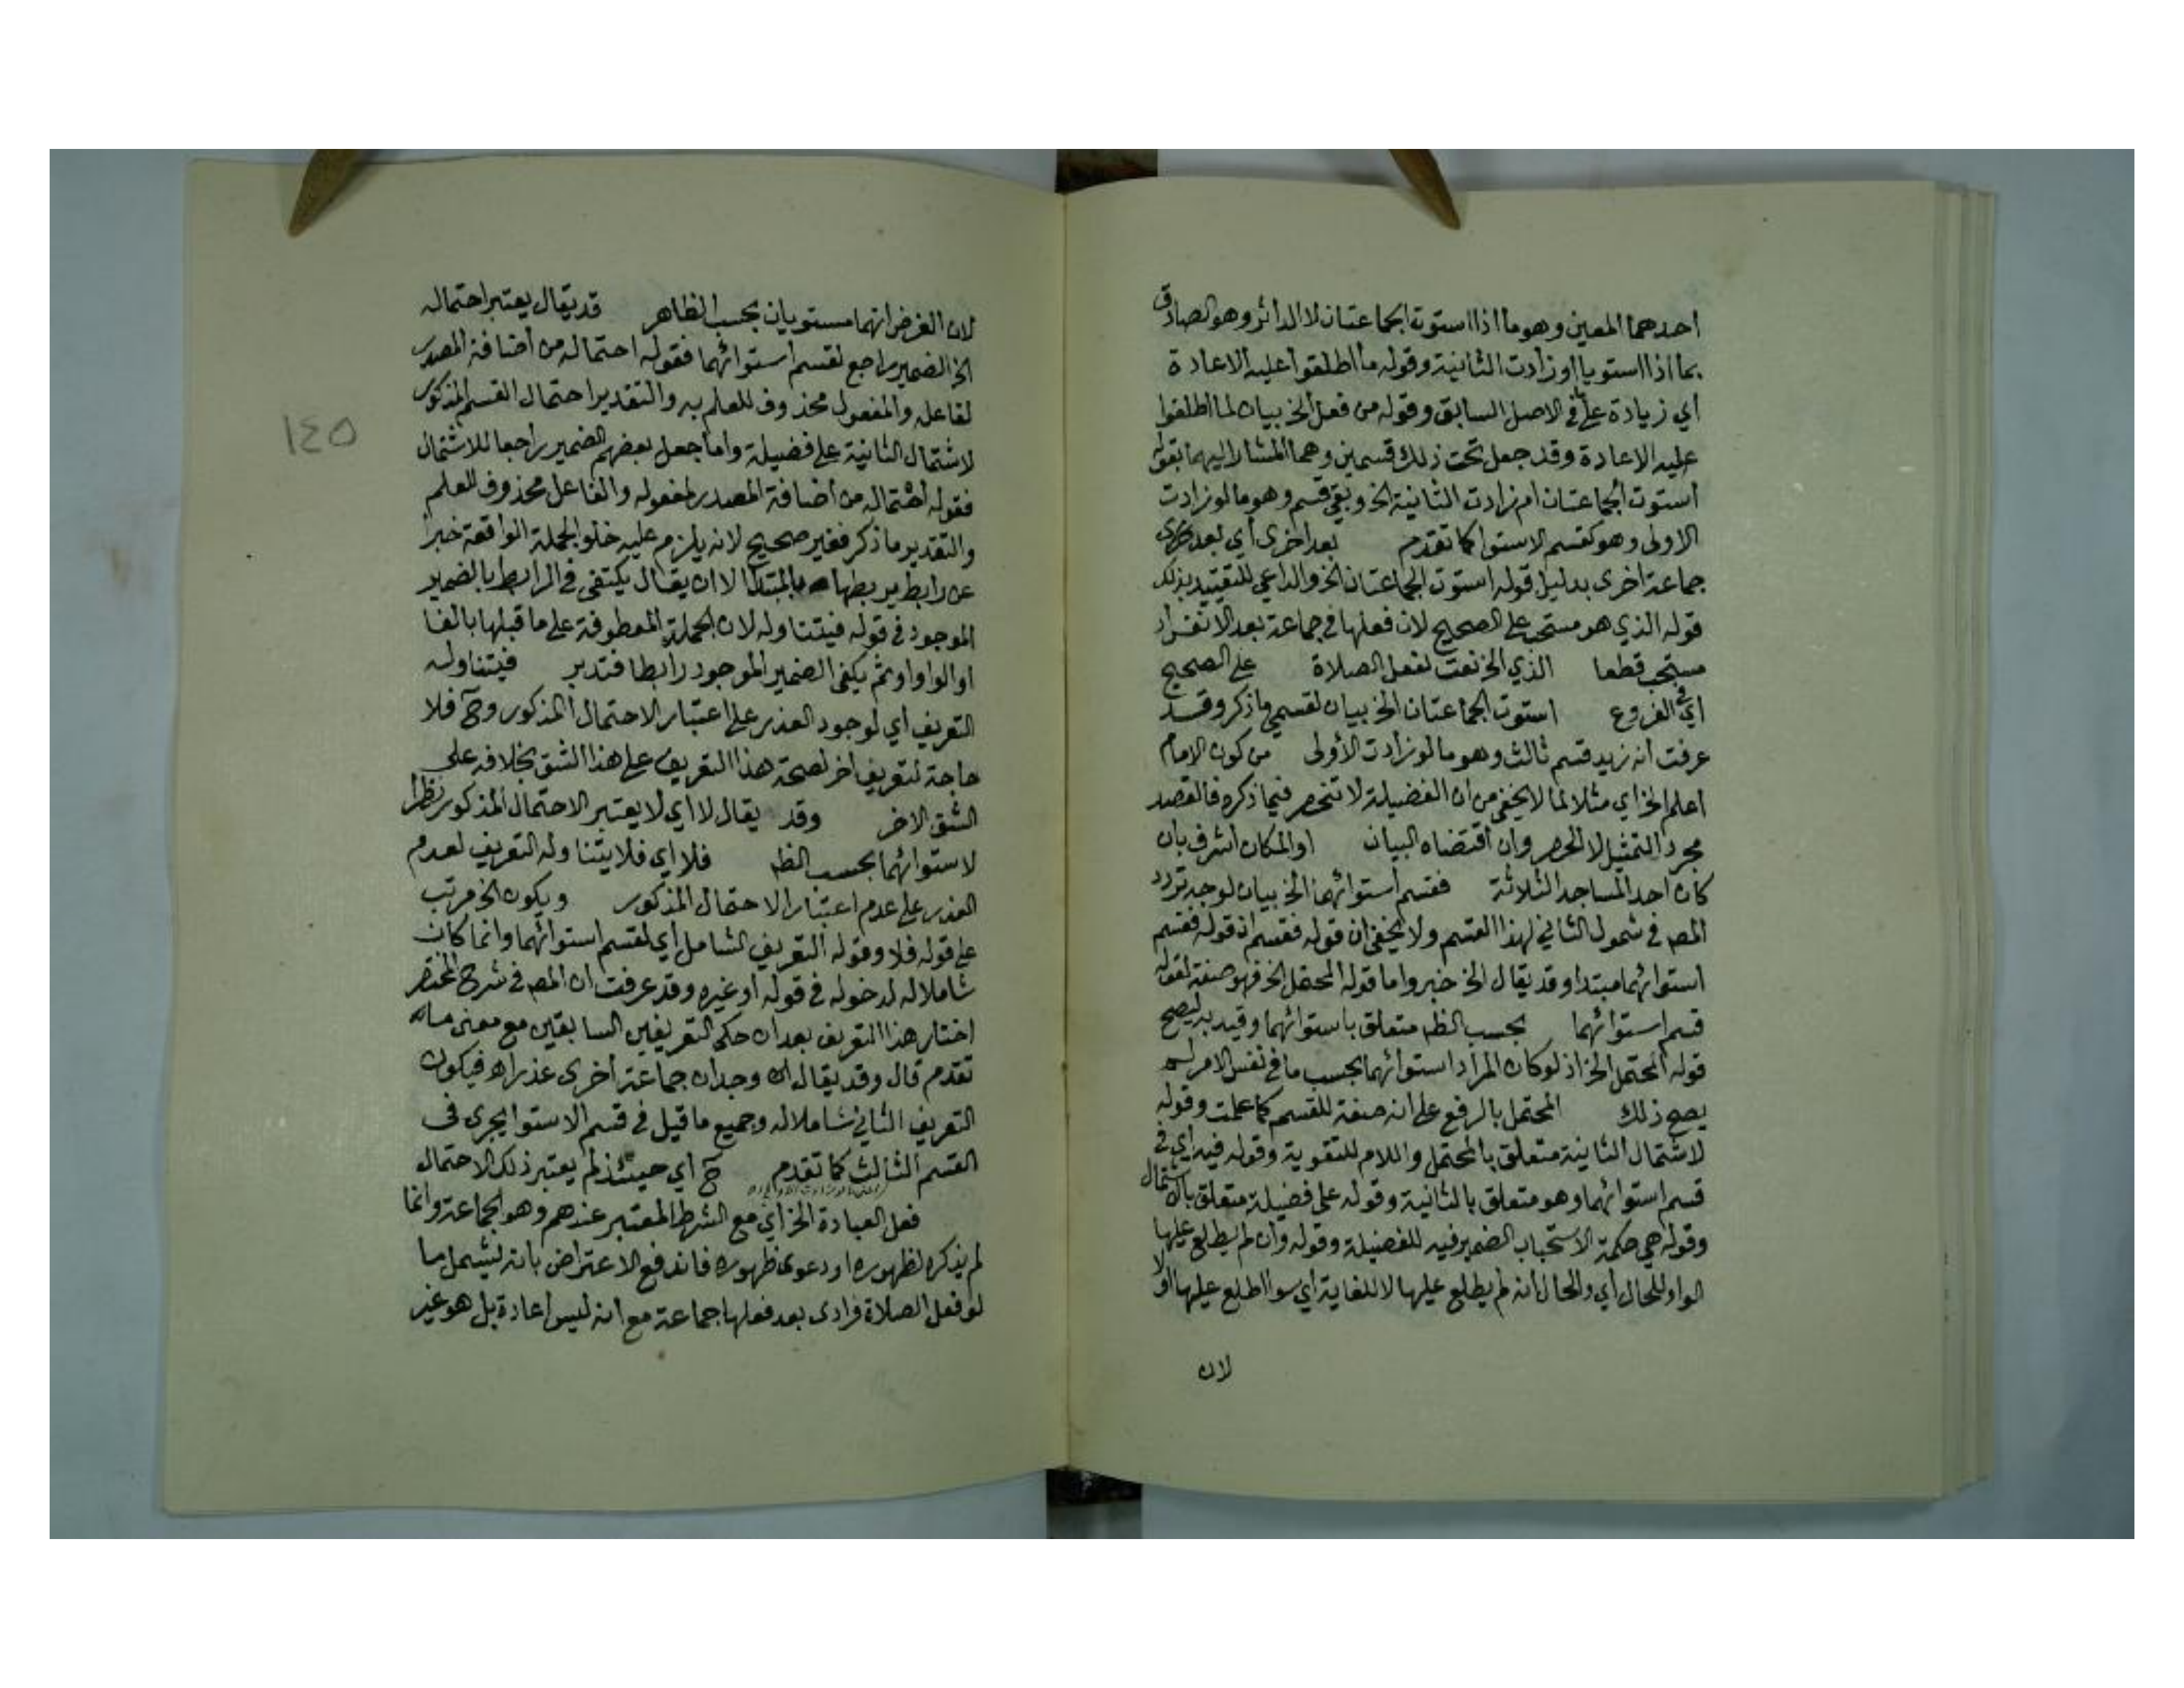 احدهما المعين وهو ما اذا استوت الجماعتان لا الدائر وهو الصادق
بما اذا استويا او زادت الثانية وقوله ما اطلقوا عليه الاعادة
اي زيادة على ما في الاصل السابق وقوله من فعل الخ بيان لما اطلقوا
عليه الاعادة وقد جعل تحت ذلك قسمين وهما المشار اليهما بقوله
استوت الجماعتان ام زادت الثانية الخ وبقي قسم وهو ما لو زادت
الاولى وهو كقسم الاستوا كما تقدم بعد اخرى أي بعد
جماعة اخرى بدليل قوله استوت الجماعتان الخ والداعي للتقييد بذلك
قوله الذي هو مستحب على الصحيح لان فعلها في جماعة بعد الانفراد
مستحب قطعا الذي الخ نعت لفعل الصلاة على الصحيح
اي في الفروع استوت الجماعتان الخ بيان لقسمي ما ذكر وقد
عرفت أنه زيد قسم ثالث وهو ما لو زادت الأولى من كون الامام
اعلم الخ اي مثلا لما لا يخفى من ان الفضيلة لا تنحصر فيما ذكره فالقصد
مجرد التمثيل لا الحصر وان اقتضاه البيان او المكان اشرف بان
كان احد المساجد الثلاثة فقسم استوائهما الخ بيان لوجه تردد
المصـ في شمول الثاني لهذا القسم ولا يخفى ان قوله فقسم اذ قوله فقسم
استوائهما مبتدا وقد يقال الخ خبر واما قوله المحتمل الخ فهو صفة لقوله
قسم استوائهما بحسب الظـ متعلق باستوائهما وقيد به ليصح
قوله المحتمل الخ اذ لو كان المراد استوائهما بحسب ما في نفس الامر لم
يصح ذلك المحتمل بالرفع على انه صفة للقسم كما علمت وقوله
لاشتمال الثانية متعلق بالمحتمل واللام للتقوية وقوله فيه اي في
قسم استوائهما وهو متعلق بالثانية وقوله على فضيلة متعلق بالاشتمال
وقوله هي حكمة الاستحباب الضمير فيه للفضيلة وقوله وان لم يطلع عليها
الواو للحال اي والحال انه لم يطلع عليها لا للغاية اي سوا اطلع عليها اولا
لان
لان الغرض انهما مستويان بحسب الظاهر قد يقال يعتبر احتماله
الخ الضمير راجع لقسم استوائهما فقوله احتماله من اضافة المصدر
لفاعله والمفعول محذوف للعلم به والتقدير احتمال القسم المذكور
لاشتمال الثانية على فضيلة واما جعل بعضهم الضمير راجعا للاشتمال
فقوله احتماله من اضافة المصدر لمفعوله والفاعل محذوف للعلم
والتقدير ما ذكر فغير صحيح لانه يلزم عليه خلو الجملة الواقعة خبرا
عن رابط يربطها بالمبتدا الا ان يقال يكتفى في الرابط بالضمير
الموجود في قوله فيتناوله لان الجملة المعطوفة على ما قبلها بالفا
او الواو او ثم يكفى الضمير الموجود رابطا فتدبر فيتناوله
التعريف أي لوجود العذر على اعتبار الاحتمال المذكور وح فلا
حاجة لتعريف اخر لصحة هذا التعريف على هذا الشق بخلافه على
الشق الاخر وقد يقال لا اي لا يعتبر الاحتمال المذكور نظرا
لاستوائهما بحسب الظـ فلا اي فلا يتناوله التعريف لعدم
العذر على عدم اعتبار الاحتمال المذكور ويكون الخ مرتب
على قوله فلا وقوله التعريف الشامل أي لقسم استوائهما وانما كان
شاملا له لدخوله في قوله او غيره وقد عرفت ان المصـ في شرح المختصر
اختار هذا التعريف بعد ان حكى التعريفين السابقين مع معنى ما
تقدم قال وقد يقال ان وجدان جماعة اخرى عذر اه فيكون
التعريف الثاني شاملا له وجميع ما قيل في قسم الاستوا يجرى في
القسم الثالث كما تقدم ح أي حينئذ لم يعتبر ذلك الاحتمال
فعل العبادة الخ اي مع الشرط المعتبر عندهم وهو الجماعة وانما
لم يذكره لظهوره او دعوى ظهوره فاندفع الاعتراض بانه ليشمل ما
لو فعل الصلاة فرادى بعد فعلها جماعة مع انه ليس اعادة بل هو غير
١٤٥